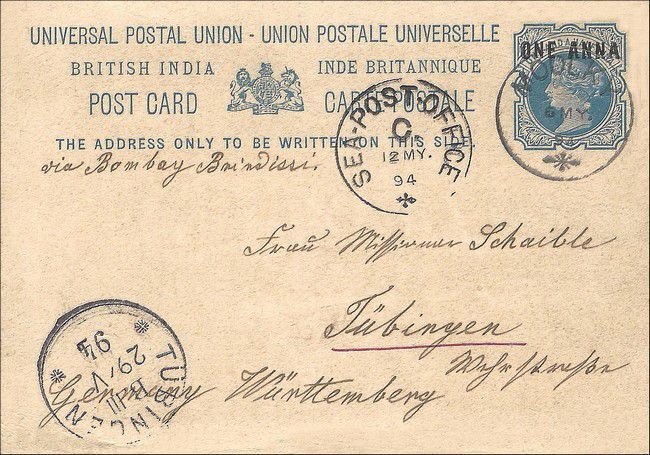 UNIVERSAL POSTAL UNION - UNION POSTALE UNIVERSELLE
BRITISH INDIA INDE BRITANNIQUE
POST CARD CARTE POSTALE
THE ADDRESS ONLY TO BE WRITTEN ON THIS SIDE.
ONE ANNA
6 MY.
94
SEA-POST-OFFICE
C.
12 MY.
94
via Bombay Brindissi.
Frau Missionar Schaible
Tübingen
Wehrstraße
Germany Württemberg
TUBINGEN
29/V
94